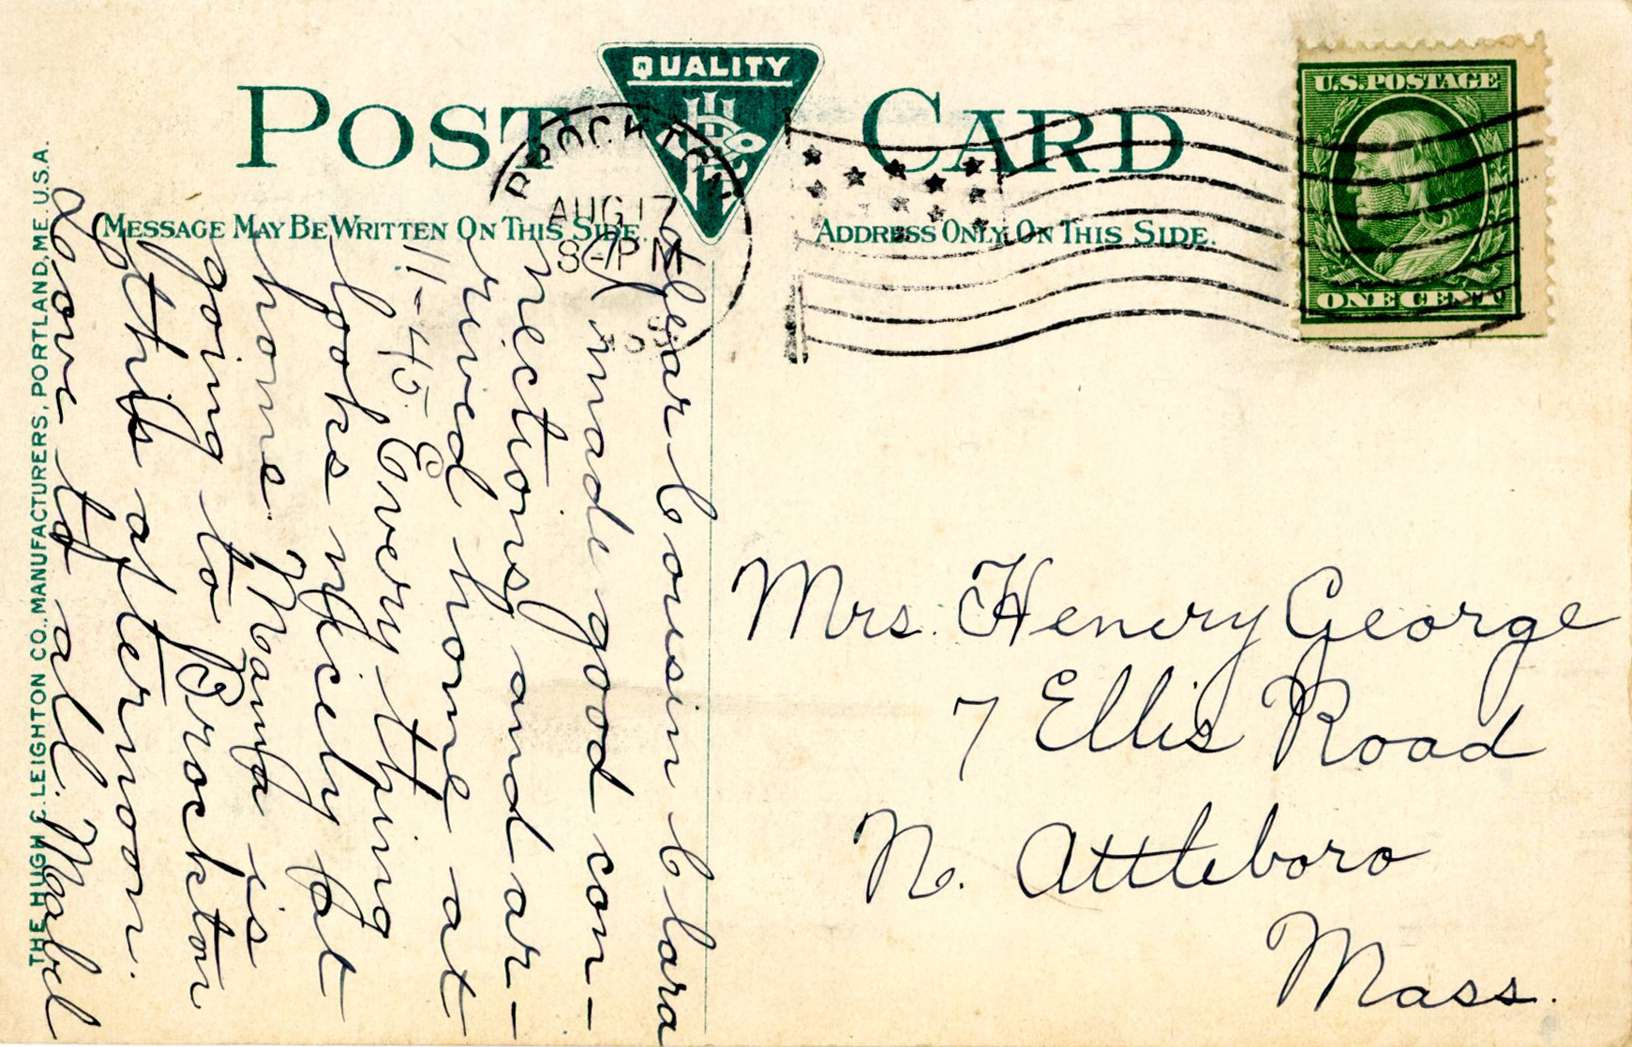 POST CARD
QUALITY
MESSAGE MAY BE WRITTEN ON THIS SIDE.
ADDRESS ONLY ON THIS SIDE.
U.S. POSTAGE
ONE CENT
BROCKTON
AUG 17
8-PM
THE HUGH C. LEIGHTON CO., MANUFACTURERS, PORTLAND, ME. U.S.A.
Dear Cousin Clara
I made good con-
nections and ar-
rived home at
11-45. Everything
looks nicely at
home. Mama is
going to Brockton
this afternoon.
Love to all. Mabel
Mrs. Henry George
7 Ellis Road
N. Attleboro
Mass.